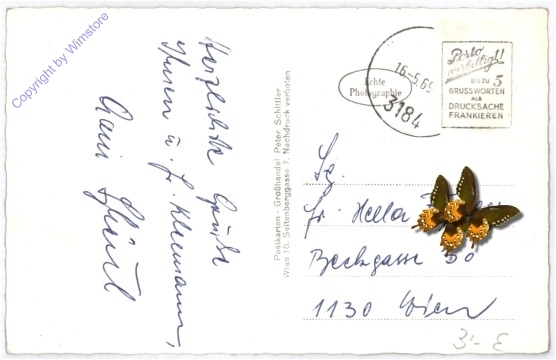 Copyright by Wimstore
Herzlichste Grüße
Ihnen u. Fr. Kleemann,
Postkarten - Großhandel Peter Schittler
Wien 16. Seitenberggasse 7, Nachdruck verboten
Echte
Photographie
16.-5.69
3184
Porto
verbilligt!
BIS ZU 5
GRUSSWORTEN
ALS
DRUCKSACHE
FRANKIEREN
Fr. Hella
Beckgasse 50
1130 Wien
3'- E